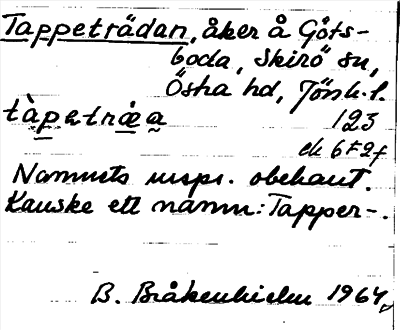 Tappeträdan, åker å Göts-
boda, Skirö sn,
Östra hd, Jönk. l.
tàpetrǣa 123
ek 6F2f
Namnets urspr. obekant.
Kanske ett namn: Tapper-.
B. Bråkenhielm 1964